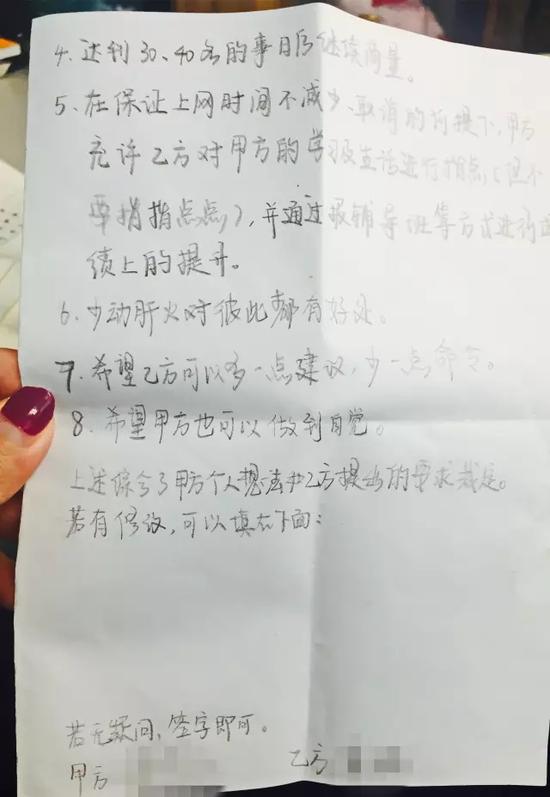 4. 达到30、40名的事日后继续商量。
5. 在保证上网时间不减少、取消的前提下,甲方
允许乙方对甲方的学习及生活进行指点,(但不
要指指点点),并通过报辅导班等方式进行成
绩上的提升。
6. 少动肝火对彼此都有好处。
7. 希望乙方可以多一点建议,少一点命令。
8. 希望甲方也可以做到自觉。
上述综合了甲方个人想法和乙方提出的要求裁定。
若有修改,可以填在下面:
若无疑问,签字即可。
甲方
乙方